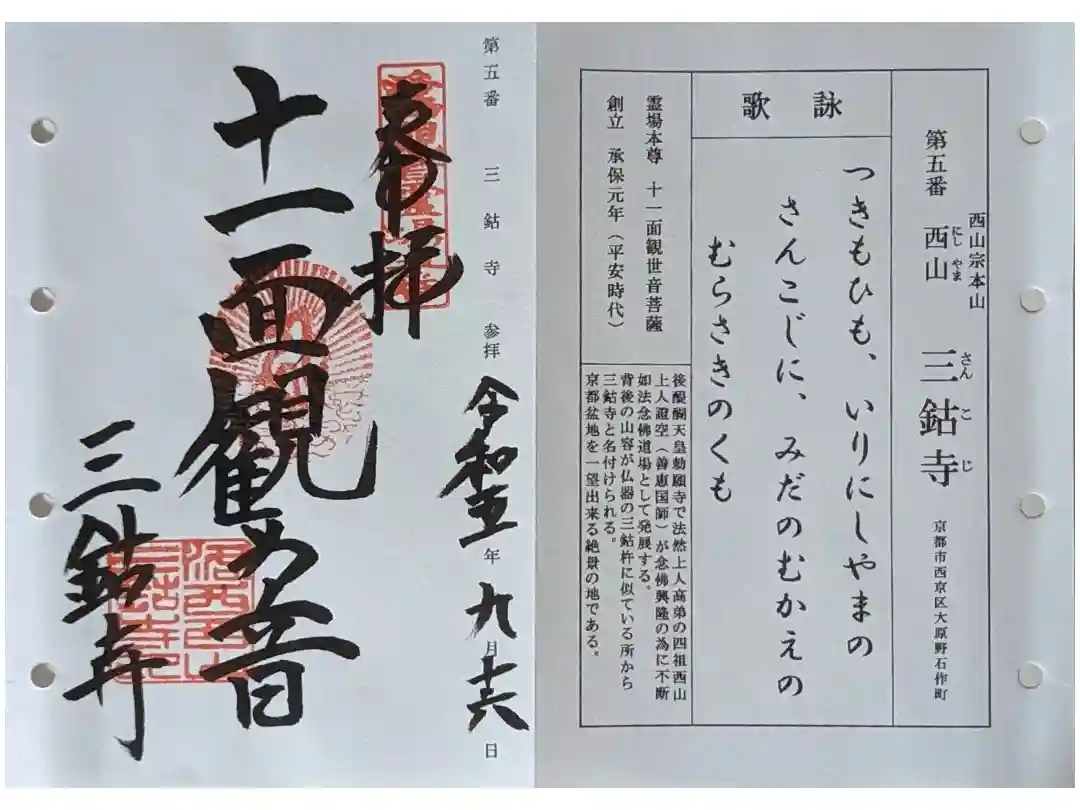 西山宗本山
第五番 西山 三鈷寺 京都市西京区大原野石作町
にし やま さん こ じ
詠歌
つきもひも、いりにしやまの
さんこじに、みだのむかえの
むらさきのくも
霊場本尊 十一面観世音菩薩
創立 承保元年（平安時代）
後醍醐天皇勅願寺で法然上人高弟の四祖西山
上人證空（善恵国師）が念佛興隆の為に不断
如法念佛道場として発展する。
背後の山容が仏器の三鈷杵に似ている所から
三鈷寺と名付けられる。
京都盆地を一望出来る絶景の地である。
第五番 三鈷寺 参拝 令和五年九月十六日
奉拝
十一面観世音
三鈷寺